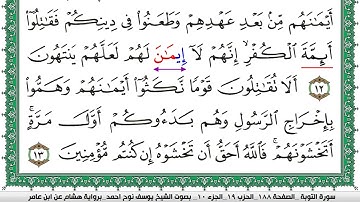 أَيْمَـٰنَهُم مِّنۢ بَعْدِ عَهْدِهِمْ وَطَعَنُوا۟ فِى دِينِكُمْ فَقَـٰتِلُوٓا۟
أَئِمَّةَ ٱلْكُفْرِ إِنَّهُمْ لَآ إِيمَـٰنَ لَهُمْ لَعَلَّهُمْ يَنتَهُونَ
١٢ أَلَا تُقَـٰتِلُونَ قَوْمًا نَّكَثُوٓا۟ أَيْمَـٰنَهُمْ وَهَمُّوا۟
بِإِخْرَاجِ ٱلرَّسُولِ وَهُم بَدَءُوكُمْ أَوَّلَ مَرَّةٍ
أَتَخْشَوْنَهُمْ فَٱللَّهُ أَحَقُّ أَن تَخْشَوْهُ إِن كُنتُم مُّؤْمِنِينَ ١٣
سورة التوبة _ الصفحة ١٨٨ _ الحزب ١٩ _ الجزء ١٠ _ بصوت الشيخ يوسف نوح احمد _ برواية هشام عن ابن عامر